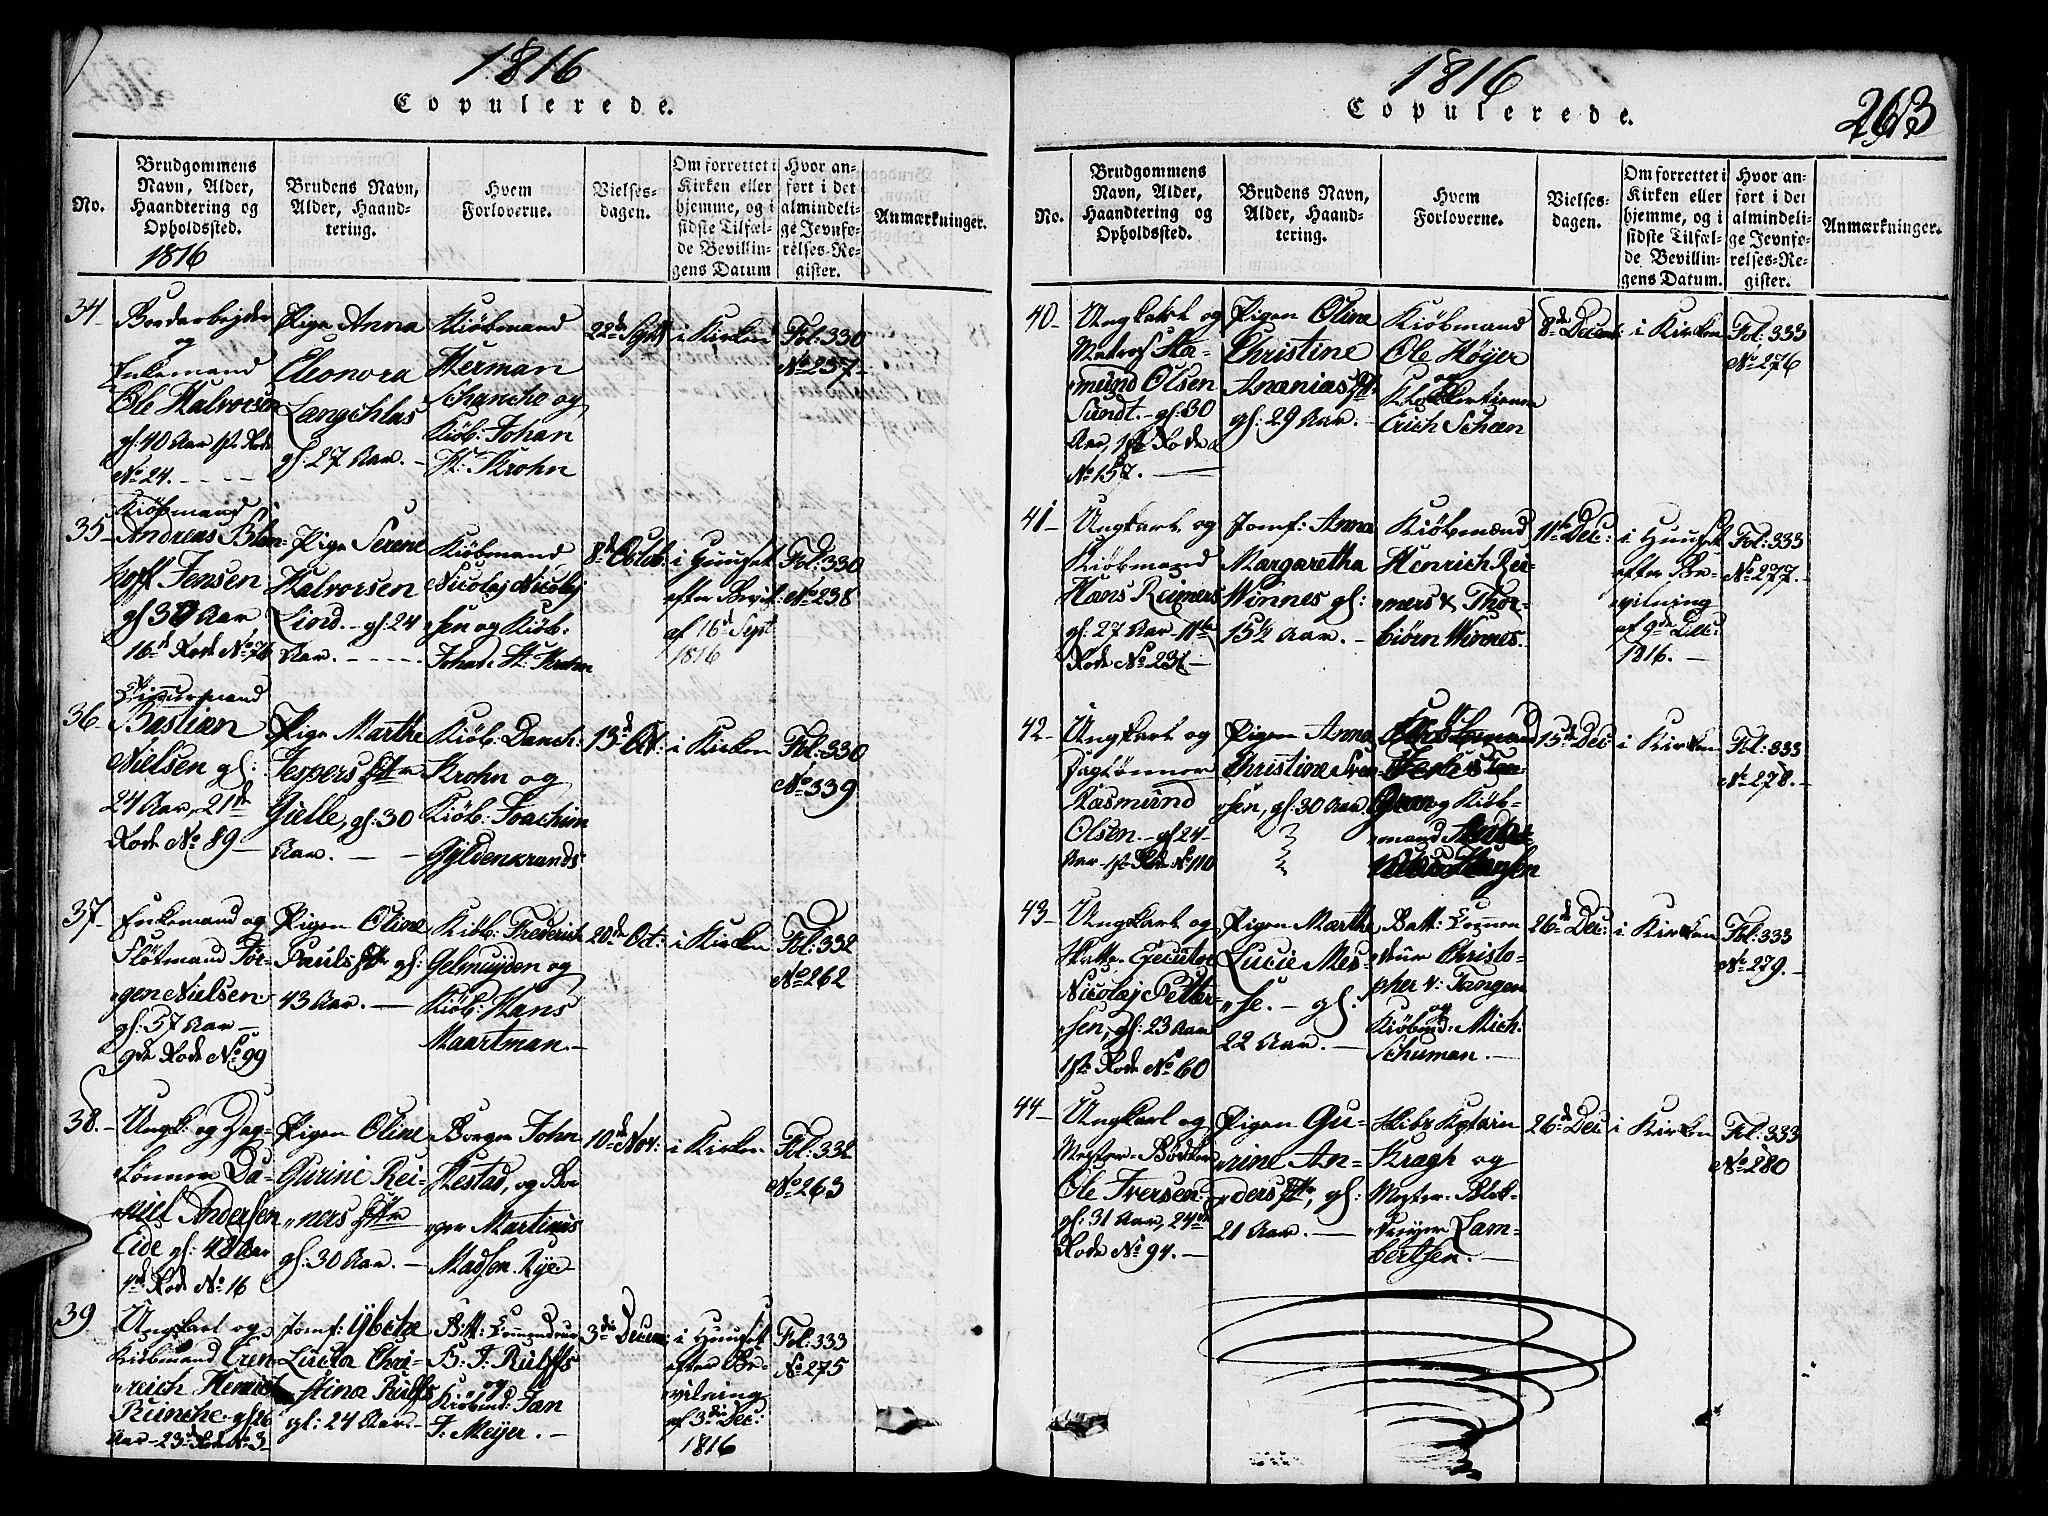 1816
Copulerede.
No.
Brudgommens
Navn, Alder,
Haandtering og
Opholdssted.
1816
Brudens Navn,
Alder, Haand-
tering.
Hvem
Forloverne.
Vielses-
dagen.
Om forrettet i
Kirken eller
hjemme, og i
sidste Tilfæl-
de Bevillin-
gens Datum
Hvor an-
ført i det
almindeli-
ge Jevnfø-
relses-Re-
gister.
Anmærkninger.
34
Bordarbejder
og
Enkemand
Ole Halvorsen
gl: 40 Aar 1st Rode
No 24.
Pige Anna
Eleonora
Langchlas
gl: 27 Aar.
Kiøbmand
Herman
Schanche og
Kiøb: Johan
St: Krohn
22de Sept
i Kirken
Fol: 330
No 257
35
Kiøbmand
Andreas Blan-
hoff Jensen
gl: 30 Aar
16de Rode No 76
Pige Serene
Halvorsen
Lind. gl: 24
Aar.
Kiøbmand
Nicolaj Nicolaj
sen og Kiøb:
Johan St: Krohn
8de Octob:
i Huuset
efter Bevil:
af 16de Sept
1816
Fol: 330
No 238
36
Bastian
Nielsen gl:
24 Aar, 21de
Rode No 89
Pige Marthe
Jespers Dttr
Gjelle, gl: 30
Aar.
Kiøb: Danch:
Krohn og
Kiøb: Joachim
Gyldenkrands
13de Oct:
i Kirken
Fol: 330
No 339
37
Enkemand og
Fløtmand Jør-
gen Nielsen
gl: 57 Aar
9de Rode No 99
Pigen Oline
Pauls Dttr gl:
43 Aar.
Kiøb: Frederich
Gelmuyden og
Kiøb: Hans
Maartman.
20de Oct:
i Kirken
Fol: 332
No 262
38.
Ungk: og Dag-
lønner Da-
niel Andersen
Eide gl: 42 Aar
4de Rode No 16
Pigen Oline
Gurini Rei-
ners Dttr
gl: 30 Aar.
Borger John
Restad, og Bor
ger Martinus
Madsen Rye
10de Nov:
i Kirken
Fol: 332
No 263
39
Ungkarl og
Kiøbmand Eren
reich Henrich
Runche gl 26
Aar 23de Rode No 3
Jomf: Ybeche
Lucia Chri-
stina Rulffs
gl: 24 Aar.
Batt: Commandeur
B. J. Rulffs
og
Kiøbmd: Jan
J. Meyer.
3die Decem:
i Huuset
efter Be-
vilning
af 3die Dec:
1816
Fol: 333
No 275
1816
Copulerede.
263
No.
Brudgommens
Navn, Alder,
Haandtering og
Opholdssted.
Brudens Navn,
Alder, Haand-
tering.
Hvem
Forloverne.
Vielses-
dagen.
Om forrettet i
Kirken eller
hjemme, og i
sidste Tilfæl-
de Bevillin-
gens Datum.
Hvor an-
ført i det
almindeli-
ge Jevnfø-
relses-Re-
gister.
Anmærkninger.
40
Ungkarl og
Matros Aa-
mund Olsen
Sundt. gl: 30
Aar, 1ste Rode
No 157.
Pigen Oline
Christine
Ananias Dt.
gl: 29 Aar.
Kiøbmand
Ole Høyer
og
Erich Scheen
8de Decem:
i Kirken
Fol: 333
No 276
41
Ungkarl og
Kiøbmand
Hans Riemers
gl: 27 Aar 11te
Rode No 231
Jomf: Anna
Margaretha
Winnes gl:
15½ Aar.
Kiøbmænd
Henrich Rei-
mers & Thor-
biørn Winnes.
11te Dec:
i Huuset
efter Be-
vilning
af 9de Dec:
1816.
Fol: 333
No 277.
42
Ungkarl og
Daglønner
Rasmund
Olsen. gl 24
Aar 1st Rode No 110
Pigen Anna
Christine Sven-
sen, gl: 30 Aar
Gran og Kiøb-
mand
Hansen
15de Dec
i Kirken
Fol: 333
No 278.
43
Ungkarl og
Skatte Executor
Nicolaj Petter-
sen, gl: 23 Aar
1ste Rode No 60
Pigen Marthe
Lucie Mes-
se. gl:
22 Aar.
Batt: Comman
deur Christo-
pher v: Tangen
og
Kiøbmd: Mich:
Schuman.
26de Dec:
i Kirken
Fol: 333
No 279.
44
Ungkarl og
Mester-Bødker
Ole Iversen
gl: 31 Aar, 24de
Rode No 94.
Pigen Gu-
rine An-
ders Dttr, gl:
21 Aar.
Skibs Kptain
Kragh og
Mester-Blok-
dreyer Lam-
bertsen.
26de Dec
i Kirken
Fol: 333
No 280